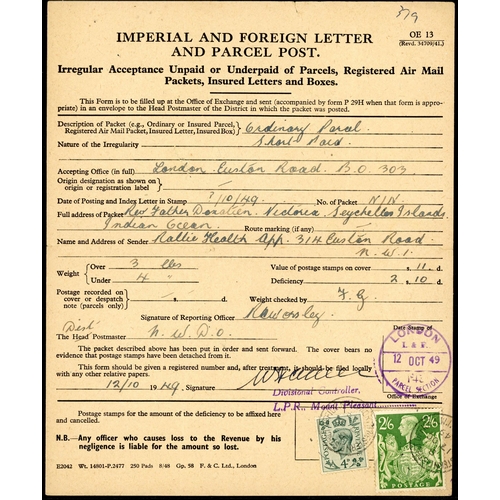 379
IMPERIAL AND FOREIGN LETTER
AND PARCEL POST.
OE 13
(Revd. 34709/41.)
Irregular Acceptance Unpaid or Underpaid of Parcels, Registered Air Mail
Packets, Insured Letters and Boxes.
This Form is to be filled up at the Office of Exchange and sent (accompanied by form P 29H when that form is appro-
priate) in an envelope to the Head Postmaster of the District in which the packet was posted.
Description of Packet (e.g., Ordinary or Insured Parcel, Registered Air Mail Packet, Insured Letter, Insured Box) Ordinary Parcel
Nature of the Irregularity Short Paid
Accepting Office (in full) London Euston Road B.O 303
Origin designation as shown on origin or registration label
Date of Posting and Index Letter in Stamp ?/10/49 No. of Packet N/N
Full address of Packet Rev Father Victoria Seychelles Islands
Indian Ocean Route marking (if any)
Name and Address of Sender Health App. 314 Euston Road
N.W.1
Weight Over 3 lbs Value of postage stamps on cover s. 11 d.
Under 4 " Deficiency 2 s. 10 d.
Postage recorded on cover or despatch note (parcels only) s. d. Weight checked by F.G
Signature of Reporting Officer
Dist
The Head Postmaster N.W.D.O. Date Stamp of
The packet described above has been put in order and sent forward. The cover bears no
evidence that postage stamps have been detached from it.
This form should be given a registered number and, after treatment, it should be filed locally
with any other relative papers.
12/10 1949 Signature
LONDON
I. & F.
12 OCT 49
PARCEL SECTION
Office of Exchange
Divisional Controller,
L.P.R., Mount Pleasant
Postage stamps for the amount of the deficiency to be affixed here
and cancelled.
N.B.— Any officer who causes loss to the Revenue by his
negligence is liable for the amount so lost.
E2042 Wt. 14801-P.2477 250 Pads 8/48 Gp. 58 F. & C. Ltd., London
4D
2/6 2/6
POSTAGE